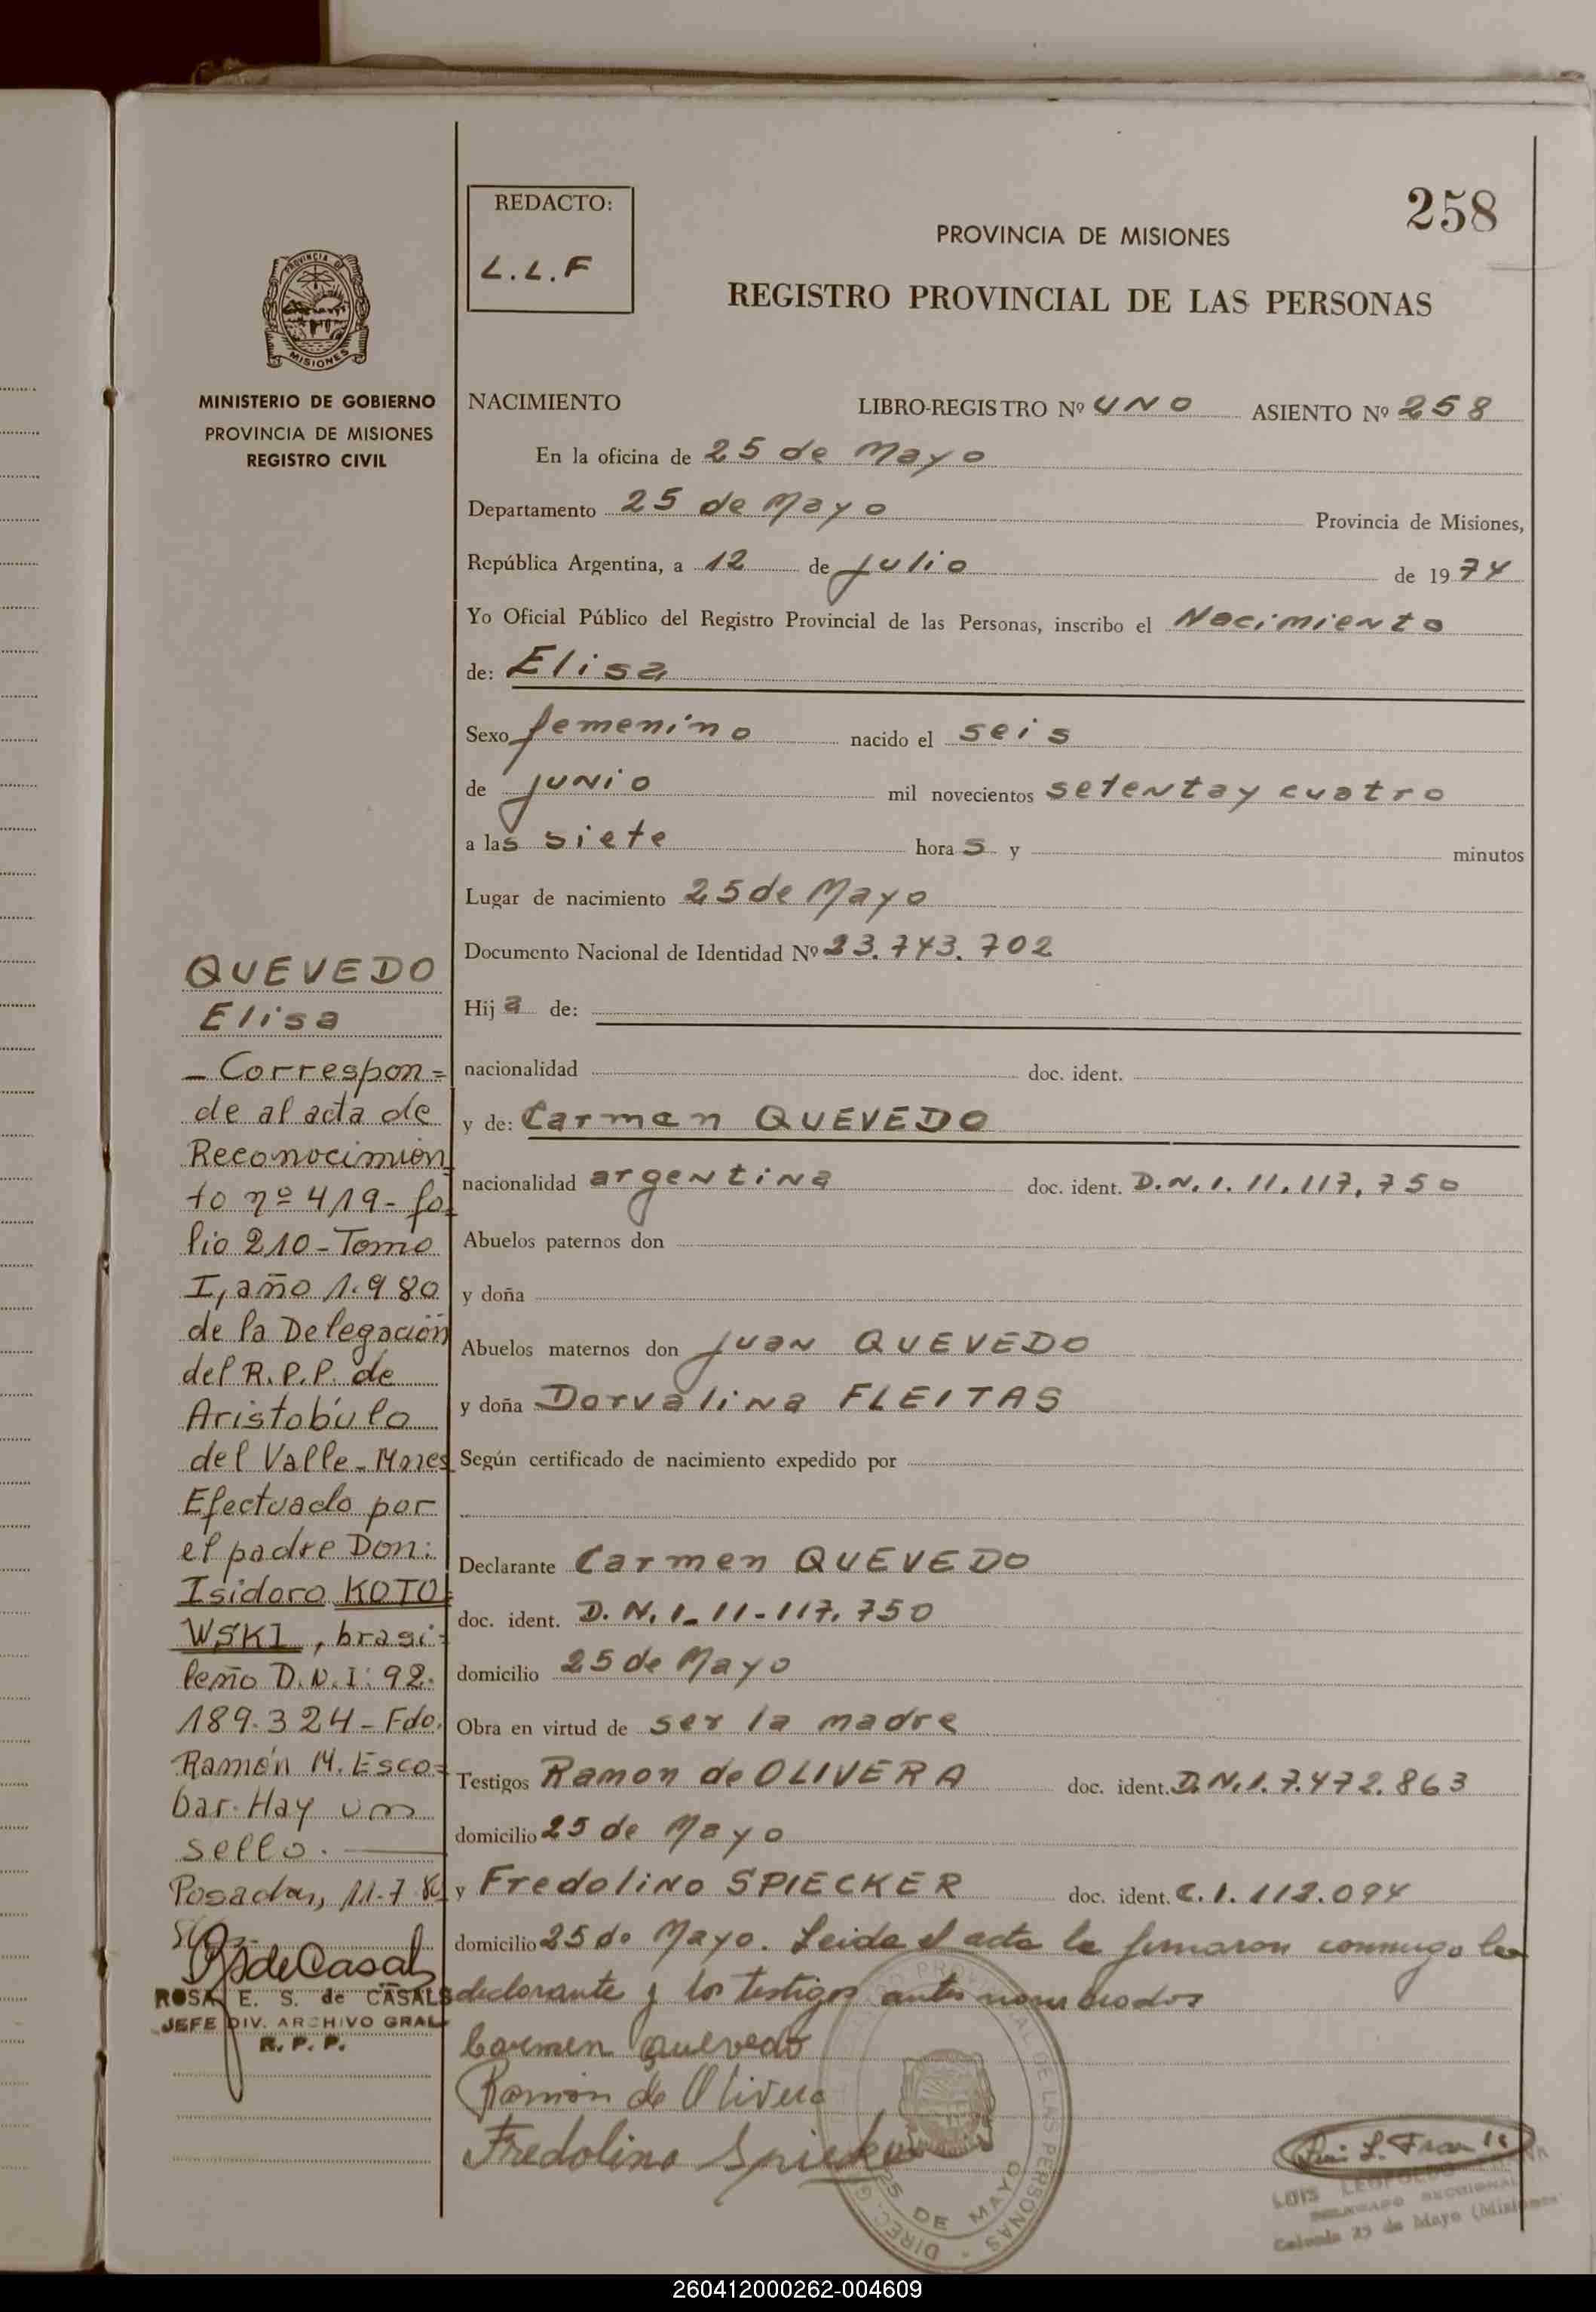 258
REDACTO:
L.L.F
PROVINCIA DE MISIONES
REGISTRO PROVINCIAL DE LAS PERSONAS
PROVINCIA DE
MISIONES
MINISTERIO DE GOBIERNO
PROVINCIA DE MISIONES
REGISTRO CIVIL
NACIMIENTO LIBRO-REGISTRO Nº UNO ASIENTO Nº 258
En la oficina de 25 de Mayo
Departamento 25 de Mayo Provincia de Misiones,
República Argentina, a 12 de julio de 1974
Yo Oficial Público del Registro Provincial de las Personas, inscribo el Nacimiento
de: Elisa
Sexo femenino nacido el seis
de junio mil novecientos setenta y cuatro
a las siete horas y minutos
Lugar de nacimiento 25 de Mayo
Documento Nacional de Identidad Nº 23.743.702
Hija de:
nacionalidad doc. ident.
y de: Carmen QUEVEDO
nacionalidad argentina doc. ident. D.N.I. 11.117.750
Abuelos paternos don
y doña
Abuelos maternos don Juan QUEVEDO
y doña Dorvalina FLEITAS
Según certificado de nacimiento expedido por
Declarante Carmen QUEVEDO
doc. ident. D.N.I- 11-117.750
domicilio 25 de Mayo
Obra en virtud de ser la madre
Testigos Ramon de OLIVERA doc. ident. D.N.I. 7.472.863
domicilio 25 de Mayo
y Fredolino SPIECKER doc. ident. C.I. 112.094
domicilio 25 de Mayo. Leida el acta la firmaron conmigo la
declarante y los testigos antes nombrados
Carmen Quevedo
Ramon de Olivera
Fredolino Spieker
QUEVEDO
Elisa
- Correspon=
de al acta de
Reconocimien
to nº 419- fo=
lio 210 - Tomo
I, año 1.980
de la Delegación
del R.P.P. de
Aristóbulo
del Valle - Mnes
Efectuado por
el padre Don:
Isidoro KOTO=
WSKI, brasi=
leño D.N.I: 92.
189.324 - Fdo.
Ramón M. Esco=
bar. Hay un
sello.
Posadas, 11-7-80
ROSA E. S. de CASALS
JEFE DIV. ARCHIVO GRAL
R. P. P.
PROVINCIAL DE LAS PERSONAS
25 DE MAYO
LUIS LEOPOLDO
Colonia 25 de Mayo (Misiones)
260412000262-004609